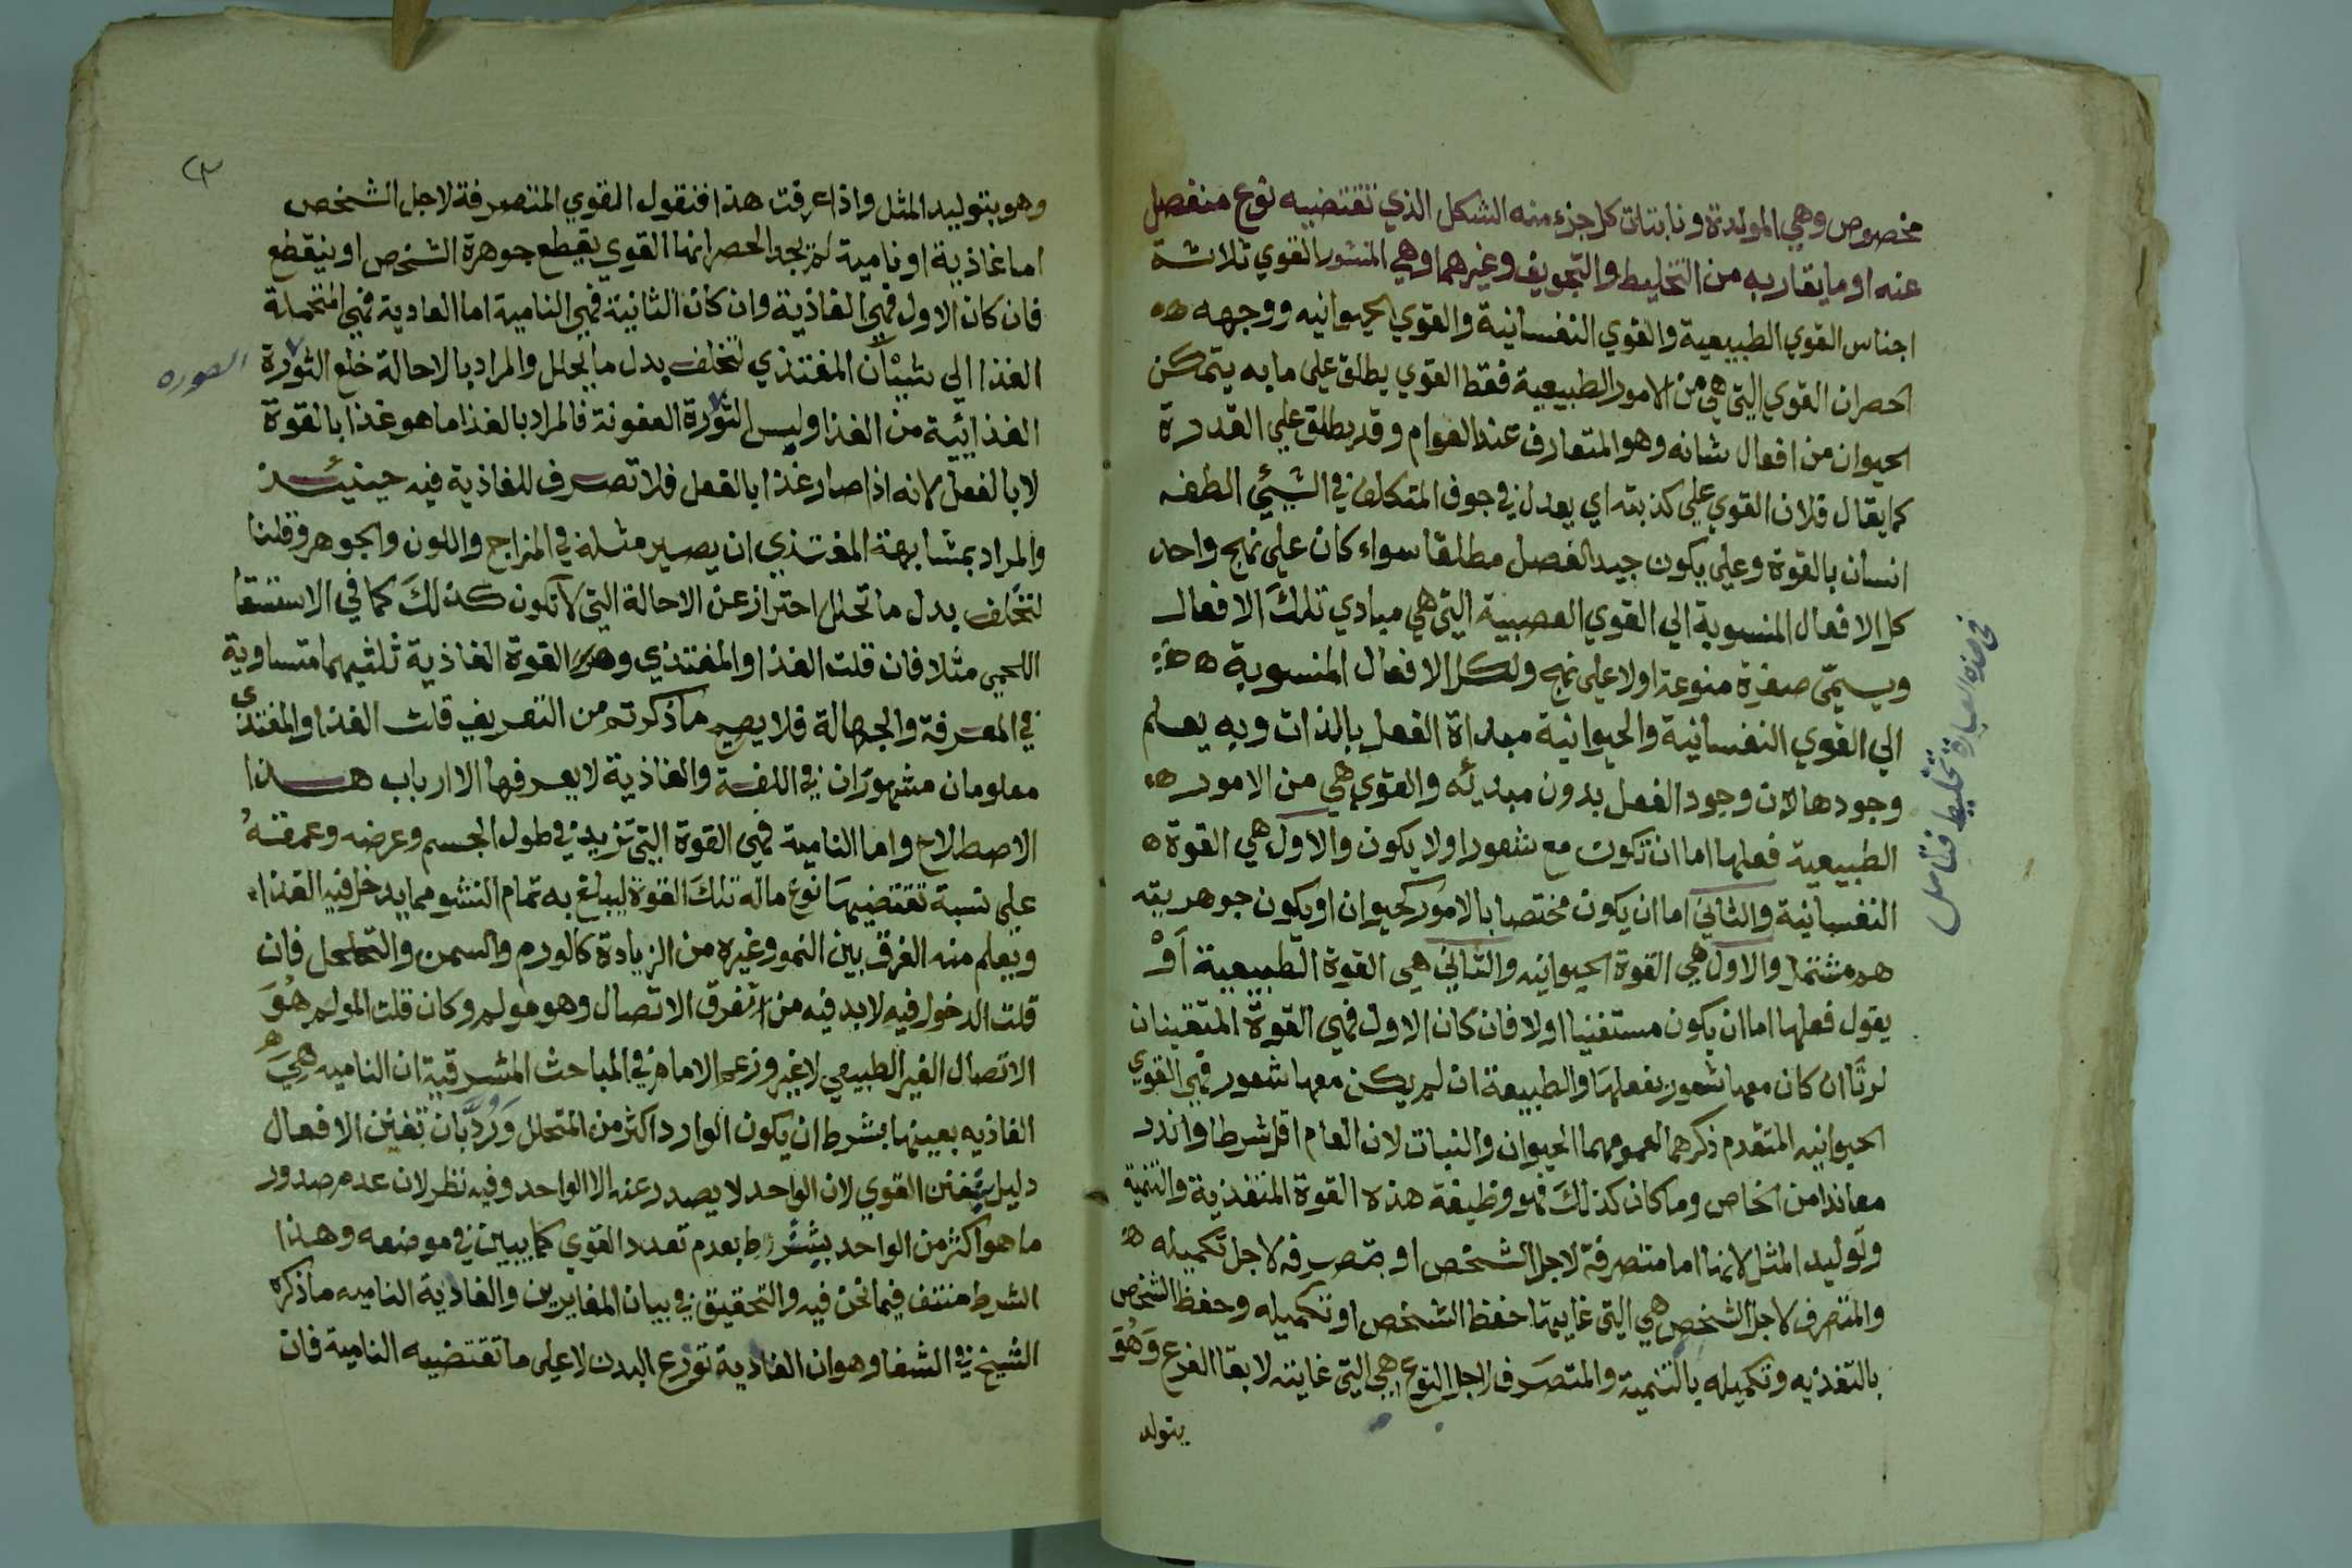 مخصوص وهي المولدة ونابتات كل جزء منه الشكل الذي تقتضيه نوع منفصل
عنه او ما يقاربه من التخليط والتجويف وغيرهما وهي المنشور القوي ثلاثة
اجناس القوي الطبيعية والقوي النفسانية والقوي الحيوانيه ووجهه
احصران القوي التي هي من الامور الطبيعية فقط القوي يطلق علي ما به يتمكن
الحيوان من افعال شانه وهو المتعارف عند العوام وقد يطلق علي القدرة
كما يقال فلان القوي علي كذبته اي يعدل في جوف المتكلف في الشيئ الطفه
انسان بالقوة وعلي يكون جيد الفصل مطلقا سواء كان علي نهج واحد
كل الافعال المنسوبة الي القوي العصبية التي هي مبادي تلك الافعال
ويسمّي صفرة منوعة اولا علي نهج ولكل الافعال المنسوبة
الي القوي النفسانية والحيوانية مبداة الفعل بالذات وبه يعلم
وجودها لان وجود الفعل بدون مبدئه والقوي هي من الامور
الطبيعية فعلها اما ان تكون مع شعور اولا يكون والاول هي القوة
النفسانية والثاني اما ان يكون مختصا بالامور كحيوان او يكون جوهريته
هو مشتمل والاول هي القوة الحيوانيه والثاني هي القوة الطبيعية اَوْ
يقول فعلها اما ان يكون مستفنيا اولا فان كان الاول فهي القوة المتقينان
لرنّا ان كان معها شعور بفعلها والطبيعة ان لم يكن معها شعور فهي القوي
الحيوانيه المتقدم ذكرهما لعمومهما الحيوان والنبات لان العام اقل شرطا واندر
معاندا من الخاص وما كان كذلك فهو وظيفة هذه القوة المتغذية والتنمية
وتوليد المثل لانها اما متصرفة لاجل الشخص او متصرفه لاجل تكميله
والمتصرف لاجل الشخص هي التي غايتها حفظ الشخص او تكميله وحفظ الشخص
بالتغذيه وتكميله بالتنمية والمتصرف لاجل النوع هي التي غايته لابقا الفرع وَهُوَ
يتولد
في هذه العبارة تخليط فتامل
٣
وهو بتوليد المثل واذا عرفت هذا فنقول القوي المتصرفة لاجل الشخص
اما غاذية او نامية لم نجد الحصر انها القوي يقطع جوهرة الشخص او ينقطع
فان كان الاول فهي الغاذية وان كان الثانية فهي النامية اما العادية فهي المتحملة
الغذا الي شيئان المغتذي لتخلف بدل ما يحلل والمراد بالاحالة خلع الثورة
الصوره
الغذائية من الغذا وليس الثورة العفونة فالمراد بالغذا ما هو غذا بالقوة
لا بالفعل لانه اذا صار غذا بالفعل فلا تصرف للغاذية فيه حينئذ
والمراد بمشابهة المغتذي ان يصير مثله في المزاج واللون والجوهر وقلنا
لتخلف بدل ما تحلل احتراز عن الاحالة التي لا تكون كذلك كما في الاستسقا
اللحمي مثلا فان قلت الغذا والمغتذي وهذه القوة الغاذية ثلثيهما متساوية
في المعرفة والجهالة فلا يصح ما ذكرتم من التعريف قلت الغذا والمغتذى
معلومان مشهوران في اللغة والغاذية لا يعرفها الا ارباب هذا
الاصطلاح واما النامية فهي القوة التي تزيد في طول الجسم وعرضه وعمقه
علي نسبة تقتضيها نوع ماله تلك القوة ليبلغ به تمام النشو مما يدخل فيه الغذاء
ويعلم منه الفرق بين النمو وغيره من الزيادة كالورم والسمن والتخلخل فان
قلت الدخول فيه لابد فيه من تفرق الاتصال وهو مولم وكان قلت المولم هُوَ
الاتصال الغير الطبيعي لا غير وزعم الامام في المباحث المشرقية ان الناميه هِيَ
الغاذيه بعينها بشرط ان يكون الوارد اكثر من المتحلل وَرُدَّ بان تفنن الافعال
دليل تفنن القوي لان الواحد لا يصدر عنه الا الواحد وفيه نظر لان عدم صدور
ما هو اكثر من الواحد بشرط بعدم تعدد القوي كما يبين في موضعه وهذا
الشرط منتف فيما نحن فيه والتحقيق في بيان المغايرين والغاذية الناميه ما ذكره
الشيخ في الشفا وهو ان الغاذية توزع البدن لا علي ما تقتضيه النامية فان